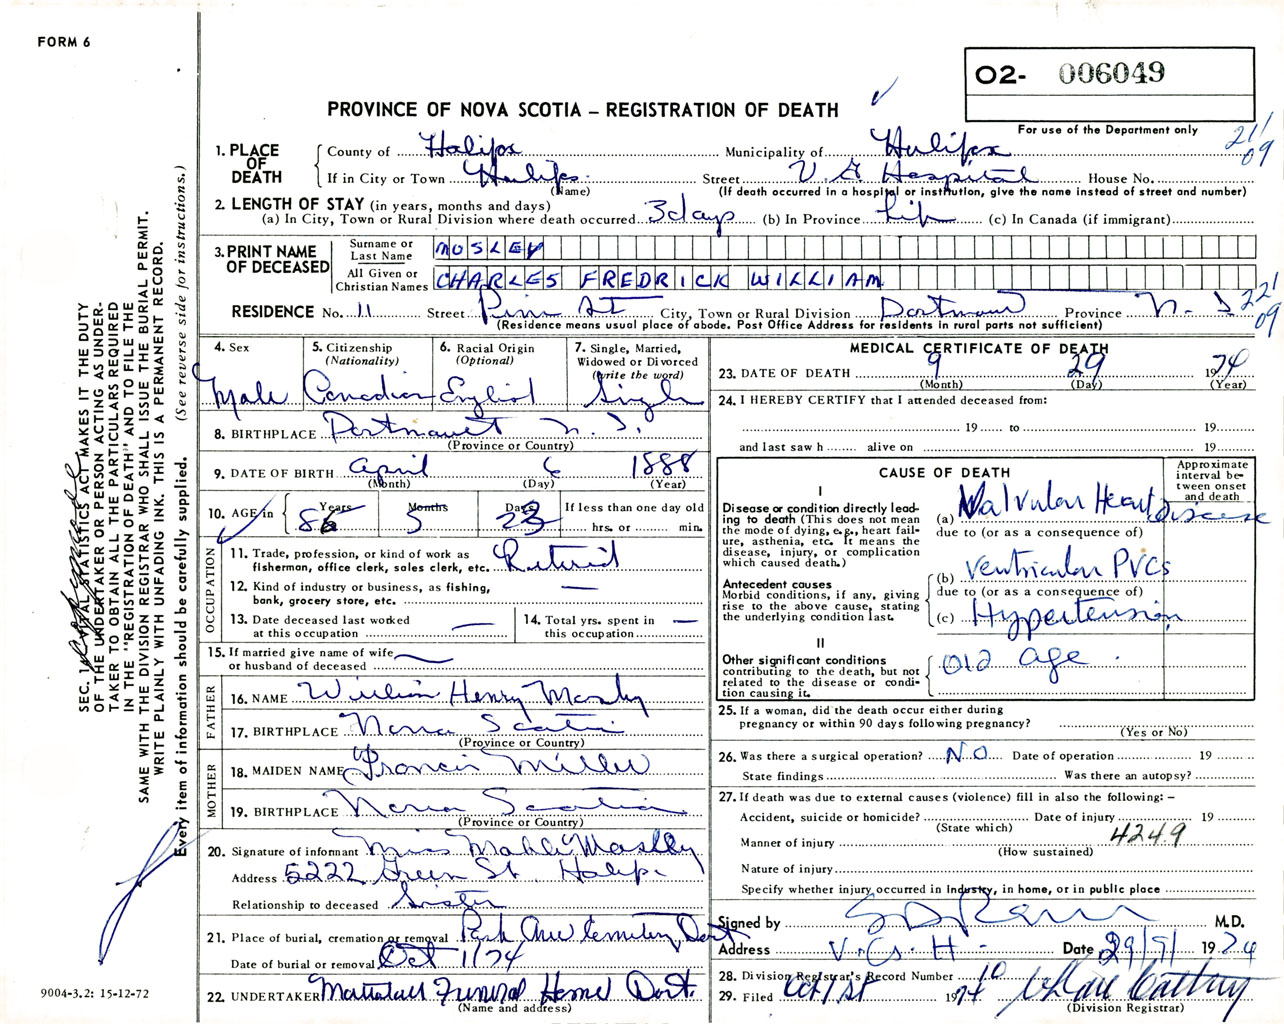 FORM 6
O2- 006049
PROVINCE OF NOVA SCOTIA – REGISTRATION OF DEATH
For use of the Department only
211
09
1. PLACE OF DEATH
County of Halifax Municipality of Halifax
If in City or Town Halifax Street V G Hospital House No.
(Name) (If death occurred in a hospital or institution, give the name instead of street and number)
2. LENGTH OF STAY (in years, months and days)
(a) In City, Town or Rural Division where death occurred 3 days (b) In Province Life (c) In Canada (if immigrant)
3. PRINT NAME OF DECEASED
Surname or Last Name MOSLEY
All Given or Christian Names CHARLES FREDRICK WILLIAM
RESIDENCE No. 11 Street Pine St City, Town or Rural Division Dartmouth Province N. S
(Residence means usual place of abode. Post Office Address for residents in rural parts not sufficient)
221
09
4. Sex
Male
5. Citizenship (Nationality)
Canadian
6. Racial Origin (Optional)
English
7. Single, Married, Widowed or Divorced (write the word)
Single
8. BIRTHPLACE Dartmouth N. S.
(Province or Country)
9. DATE OF BIRTH April 6 1888
(Month) (Day) (Year)
10. AGE in Years 86 Months 5 Days 23 If less than one day old hrs. or min.
OCCUPATION
11. Trade, profession, or kind of work as fisherman, office clerk, sales clerk, etc. Retired
12. Kind of industry or business, as fishing, bank, grocery store, etc. —
13. Date deceased last worked at this occupation —
14. Total yrs. spent in this occupation —
15. If married give name of wife or husband of deceased —
FATHER
16. NAME William Henry Mosley
17. BIRTHPLACE Nova Scotia
(Province or Country)
MOTHER
18. MAIDEN NAME Francis Miller
19. BIRTHPLACE Nova Scotia
(Province or Country)
20. Signature of informant Miss Mable Moslly
Address 5222 Green St. Halifax
Relationship to deceased Sister
21. Place of burial, cremation or removal Park Ave Cemetery Dart
Date of burial or removal Oct 1/74
22. UNDERTAKER Mattatall Funeral Home Dart.
(Name and address)
MEDICAL CERTIFICATE OF DEATH
23. DATE OF DEATH 9 29 1974
(Month) (Day) (Year)
24. I HEREBY CERTIFY that I attended deceased from:
19 to 19
and last saw h alive on 19
CAUSE OF DEATH
Approximate interval between onset and death
I
Disease or condition directly leading to death (This does not mean the mode of dying, e.g., heart failure, asthenia, etc. It means the disease, injury, or complication which caused death.)
(a) Valvular Heart Disease
due to (or as a consequence of)
Antecedent causes
Morbid conditions, if any, giving rise to the above cause, stating the underlying condition last.
(b) Ventricular PVCs
due to (or as a consequence of)
(c) Hypertension
II
Other significant conditions contributing to the death, but not related to the disease or condition causing it.
Old age.
25. If a woman, did the death occur either during pregnancy or within 90 days following pregnancy?
(Yes or No)
26. Was there a surgical operation? NO Date of operation 19
State findings Was there an autopsy?
27. If death was due to external causes (violence) fill in also the following: –
Accident, suicide or homicide? Date of injury 19
(State which)
4249
Manner of injury
(How sustained)
Nature of injury
Specify whether injury occurred in Industry, in home, or in public place
Signed by M.D.
Address V.G.H. Date 29/9/1974
28. Division Registrar's Record Number 10
29. Filed Oct 1st 1974
(Division Registrar)
SEC. 1 VITAL STATISTICS ACT MAKES IT THE DUTY OF THE UNDERTAKER OR PERSON ACTING AS UNDERTAKER TO OBTAIN ALL THE PARTICULARS REQUIRED IN THE "REGISTRATION OF DEATH" AND TO FILE THE SAME WITH THE DIVISION REGISTRAR WHO SHALL ISSUE THE BURIAL PERMIT.
WRITE PLAINLY WITH UNFADING INK. THIS IS A PERMANENT RECORD.
Every item of information should be carefully supplied. (See reverse side for instructions.)
9004-3.2: 15-12-72